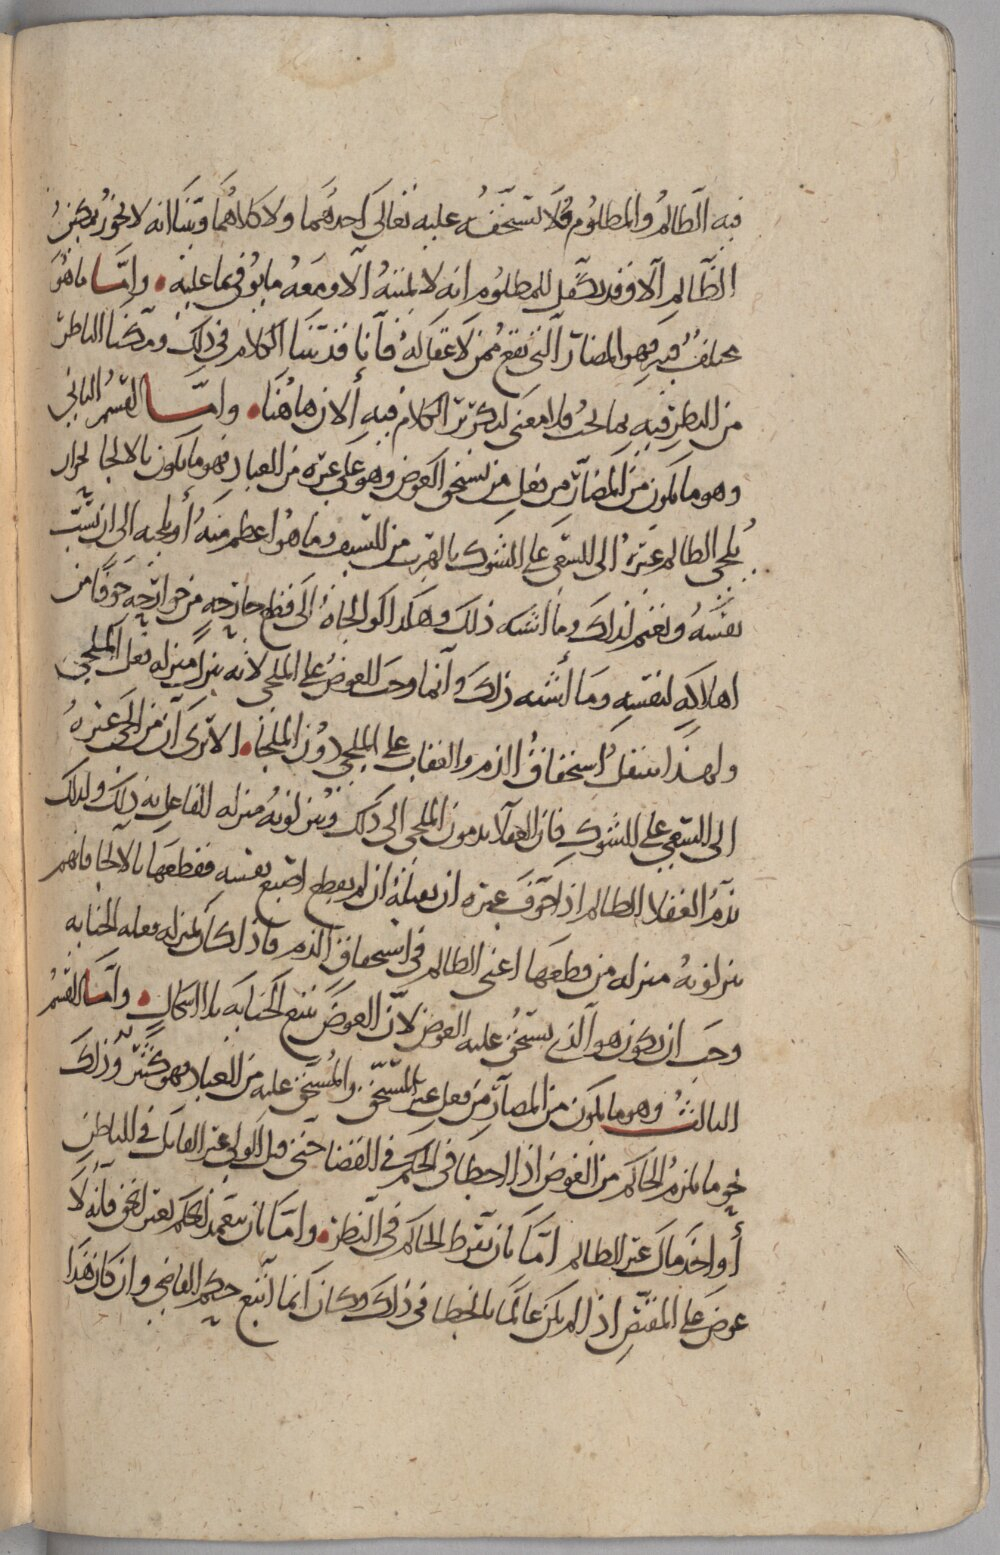 فيه الظالم والمظلوم ولا تستحقه عليه تعالى احدهما ولا كلاهما وبينا انه لا يجوز تمكين
الظالم الا وقد تكفل للمظلوم انه لا يميته الا ومعه ما يوفي بما عليه • واما ما هو
مختلف فيه فهو المضار التي تقع ممن لا عقل له فانا قد بينا الكلام في ذلك ومكنا الناظر
من النظر فيه بما يجب فلا معنى لتكرير الكلام فيه الان هاهنا • واما القسم الثاني
وهو ما يكون من المضار من فعل من يستحق العوض وهو على غيره من العباد فهو ما يكون بالالجا نحو ان
يلجي الظالم غيره الى السعي على الشوك بالهرب من السيف وما هو اعظم منه أو يلجيه الى ان يسب
نفسه ونغتم لذلك وما اشبه ذلك وهكذا لو الجاه الى قطع جارحه من جوارحه خوفا من
اهلاكه لنفسه وما أشبه ذلك وانما وجب العوض على الملجي لانه ينزل منزله فعل الملجي
ولهذا ينتقل استحقاق الذم والعقاب على الملجي دون الملجا • الا ترى أن من الجى غيره
الى السعي على الشوك فان العقلا يذمون الملجي الى ذلك وينزلونه منزله الفاعل به ذلك ولذلك
تذم العقلا الظالم اذا خوف غيره ان يقتله ان لم يقطع اصبع نفسه فقطعها بالالجا فانهم
ينزلونه منزله من قطعها اعني الظالم في استحقاق الذم فاذا كان بمنزله فعله الجنايه
وجب ان يكون هو الذي يستحق عليه العوض لان العوض يتبع الجنايه بلا اشكال • واما القسم
الثالث وهو ما يكون من المضار من فعل غير المستحق والمستحق عليه من العباد فهو كثير وذلك
نحو ما يلزم الحاكم من العوض اذا اخطا في الحكم في القضا حتى قتل الولي غير القاتل في الباطن
أو اخذ مال غير الظالم اما بان يفرط الحاكم في النظر • واما بان يتعمد الحكم بغير الحق فانه لا
عوض على المقتص اذا لم يكن عالما بالخطا في ذلك وكان انما اتبع حكم القاضي وان كان هذا